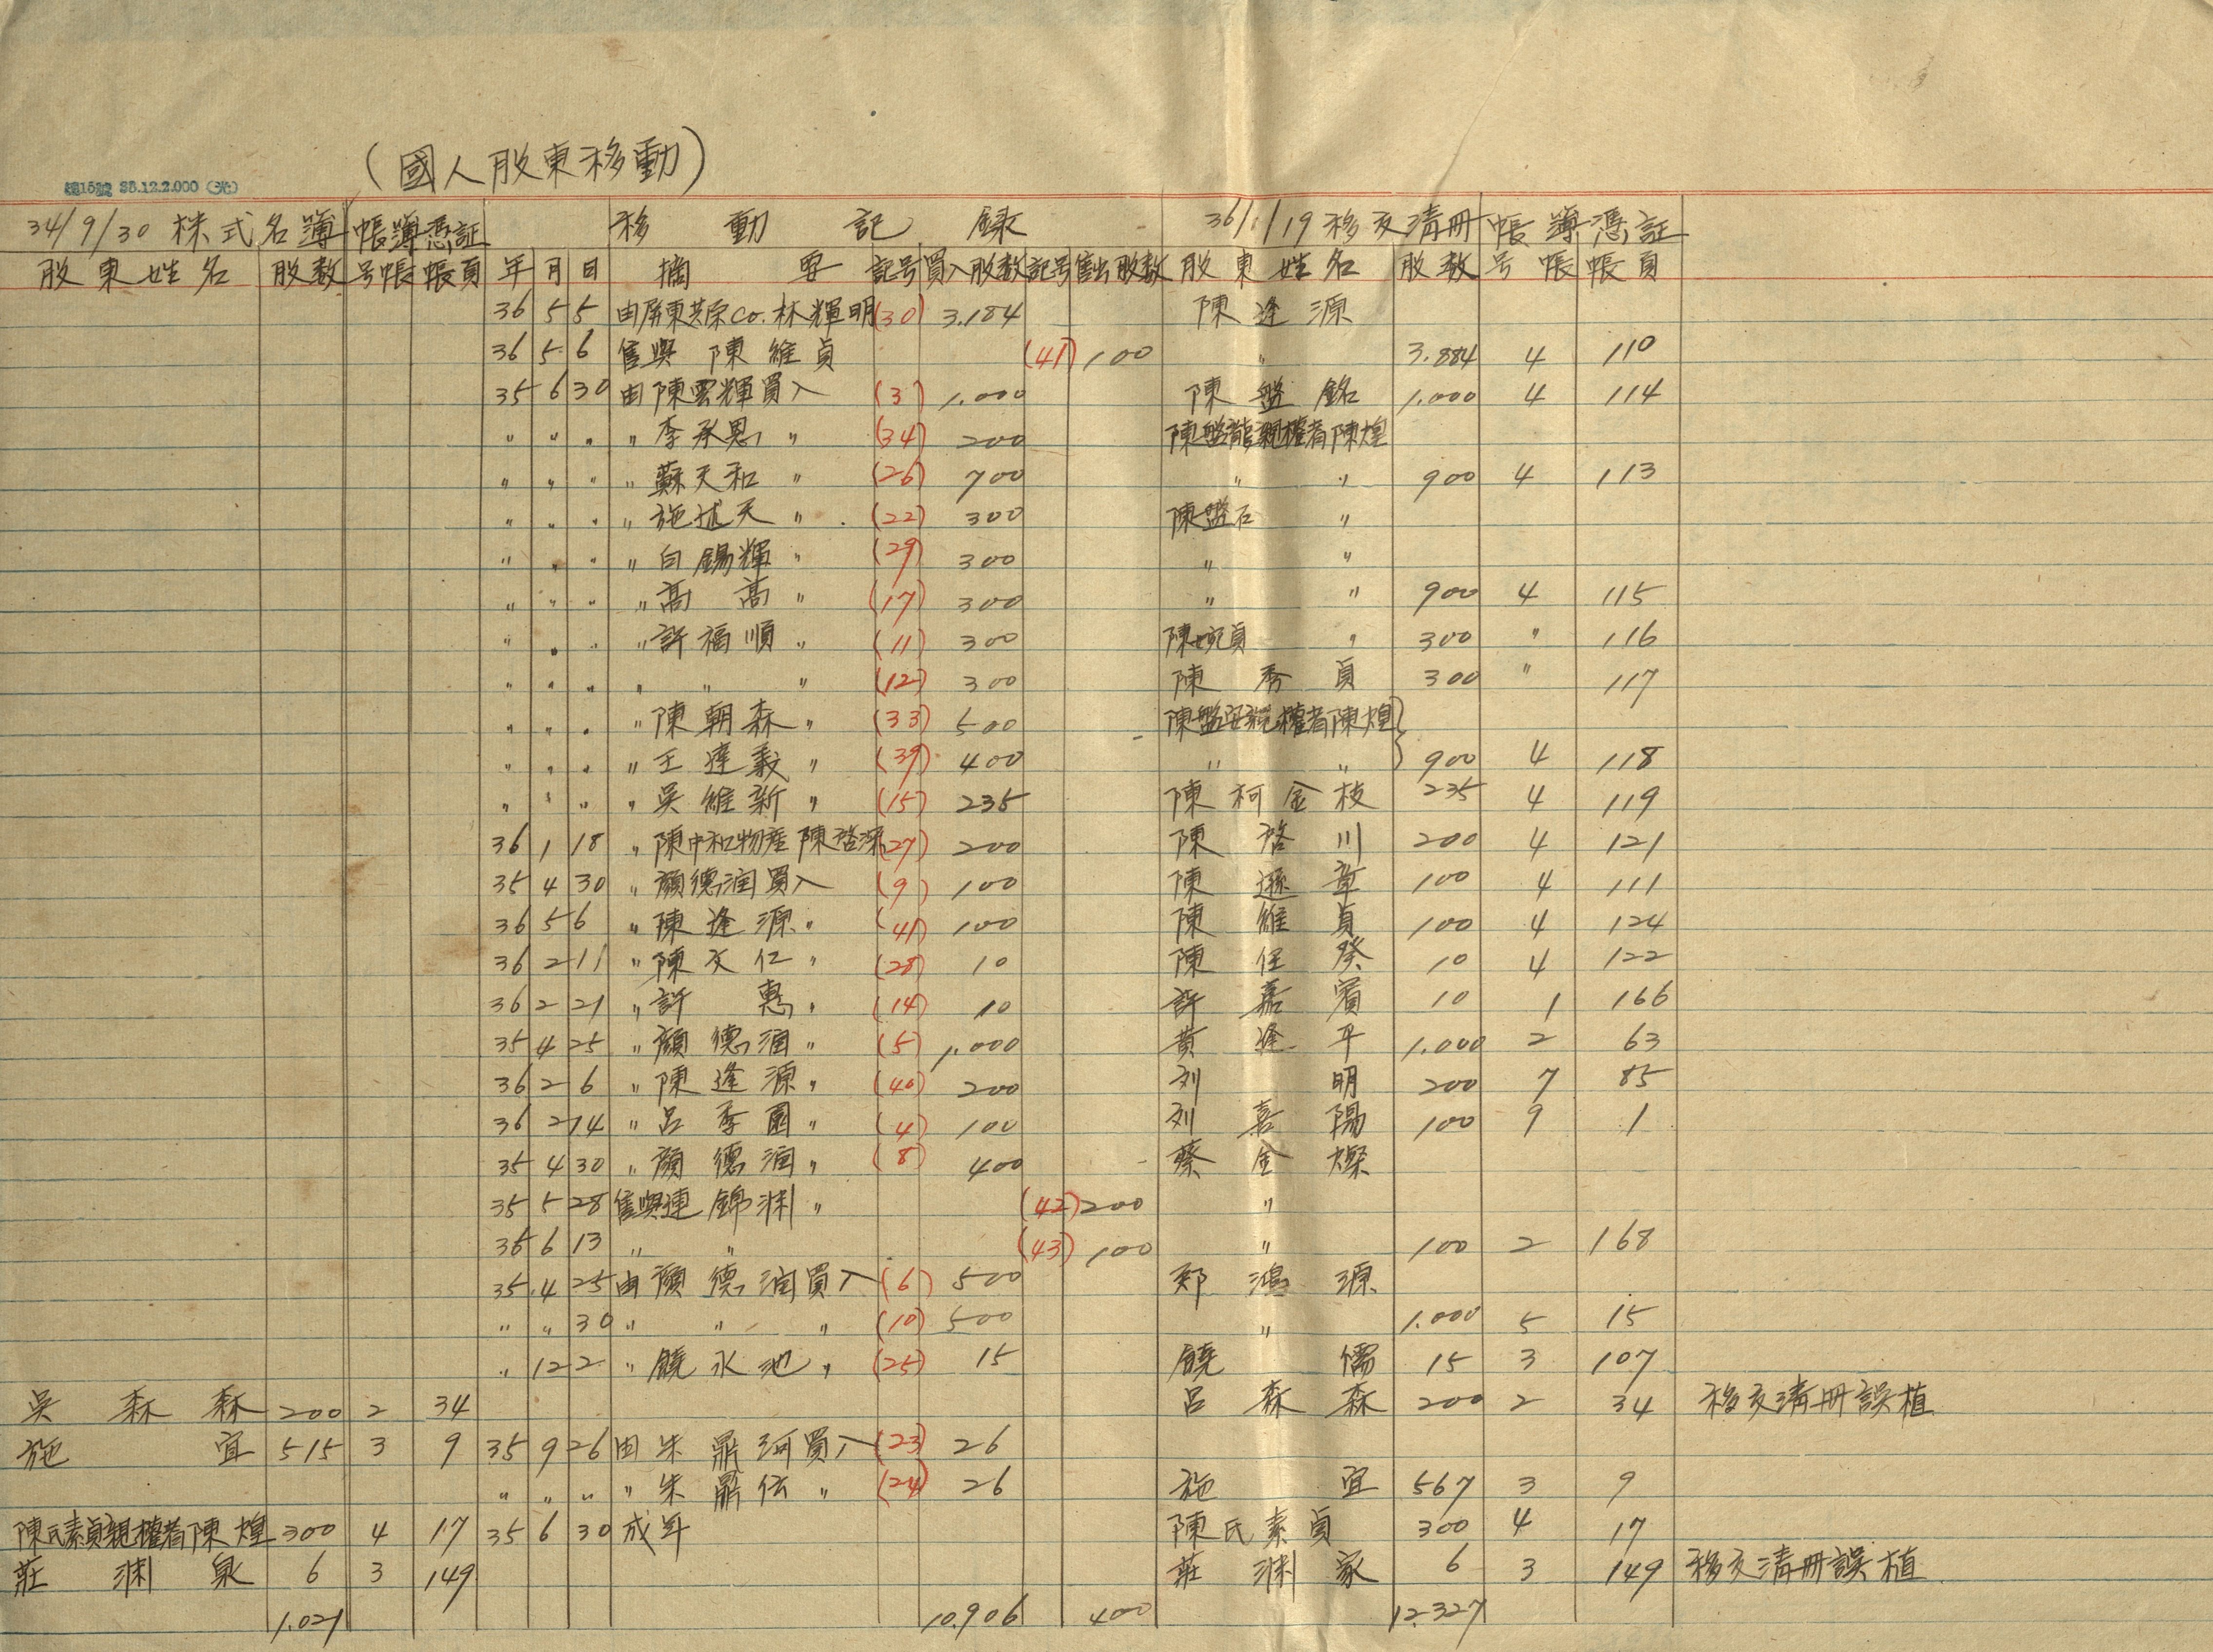 (國人股東移動)
34/9/30 株式名簿 帳簿憑証 移動記録 36/1/19 移交清冊 帳簿憑証
股東姓名 股数 号帳 帳頁 年 月 日 摘要 記号 買入股数 記号 售出股数 股東姓名 股数 号帳 帳頁
36 5 5 由屏東 Co. 林輝明 (30) 3.184 陳逢源
36 5 6 售與 陳維貞 (41) 100 〃 3.884 4 110
35 6 30 由陳雲輝買入 (3) 1.000 陳盤銘 1.000 4 114
〃 〃 〃 〃 李承恩 〃 (34) 200 陳盤龍親權者陳煌
〃 〃 〃 〃 蘇天和 〃 (26) 700 〃 〃 900 4 113
〃 〃 〃 〃 施述天 〃 (22) 300 陳盤石 〃
〃 〃 〃 〃 白錫輝 〃 (29) 300 〃 〃
〃 〃 〃 〃 高高 〃 (17) 300 〃 〃 900 4 115
〃 〃 〃 〃 許福順 〃 (11) 300 陳婉貞 〃 300 〃 116
〃 〃 〃 〃 〃 〃 (12) 300 陳秀貞 300 〃 117
〃 〃 〃 〃 陳朝森 〃 (33) 500 陳盤安親權者陳煌
〃 〃 〃 〃 王達毅 〃 (39) 400 〃 〃 900 4 118
〃 〃 〃 〃 吳維新 〃 (15) 235 陳柯金枝 235 4 119
36 1 18 〃 陳中和物産 陳啓深 (27) 200 陳啓川 200 4 121
35 4 30 〃 顏德润買入 (9) 100 陳遜章 100 4 111
36 5 6 〃 陳逢源 〃 (41) 100 陳維貞 100 4 124
36 2 11 〃 陳文仁 〃 (28) 10 陳任癸 10 4 122
36 2 21 〃 許惠 〃 (14) 10 許嘉賓 10 1 166
35 4 25 〃 顏德润 〃 (5) 1.000 黃逢平 1.000 2 63
36 2 6 〃 陳逢源 〃 (40) 200 刘明 200 7 85
36 2 14 〃 呂季園 〃 (4) 100 刘嘉陽 100 9 1
35 4 30 〃 顏德润 〃 (8) 400 蔡金燦
35 5 28 售與連錦渊 〃 (42) 200 〃
35 6 13 〃 〃 (43) 100 〃 100 2 168
35 4 25 由顏德润買入 (6) 500 郑鴻源
〃 〃 30 〃 〃 〃 (10) 500 〃 1.000 5 15
〃 12 2 〃 饒永池 〃 (25) 15 饒儒 15 3 107
吳森森 200 2 34 呂森森 200 2 34 移交清冊誤植
施宜 515 3 9 35 9 26 由朱鼎河買入 (23) 26
〃 〃 〃 〃 朱鼎伝 〃 (24) 26 施宜 567 3 9
陳氏素貞親權者陳煌 300 4 17 35 6 30 成年 陳氏素貞 300 4 17
莊渊泉 6 3 149 莊渊家 6 3 149 移交清冊誤植
1.021 10.906 400 12.327